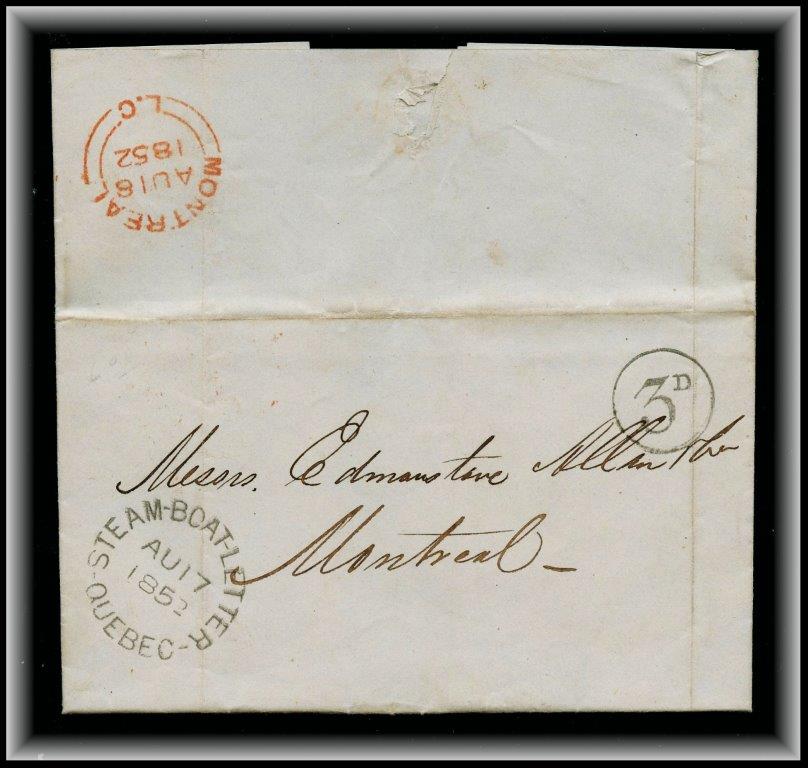 MONTREAL
AU 18
1852
L.C
3D
Messrs. Edmonstone Allan & Co
Montreal -
STEAM-BOAT-LETTER
AU 17
1852
-QUEBEC-